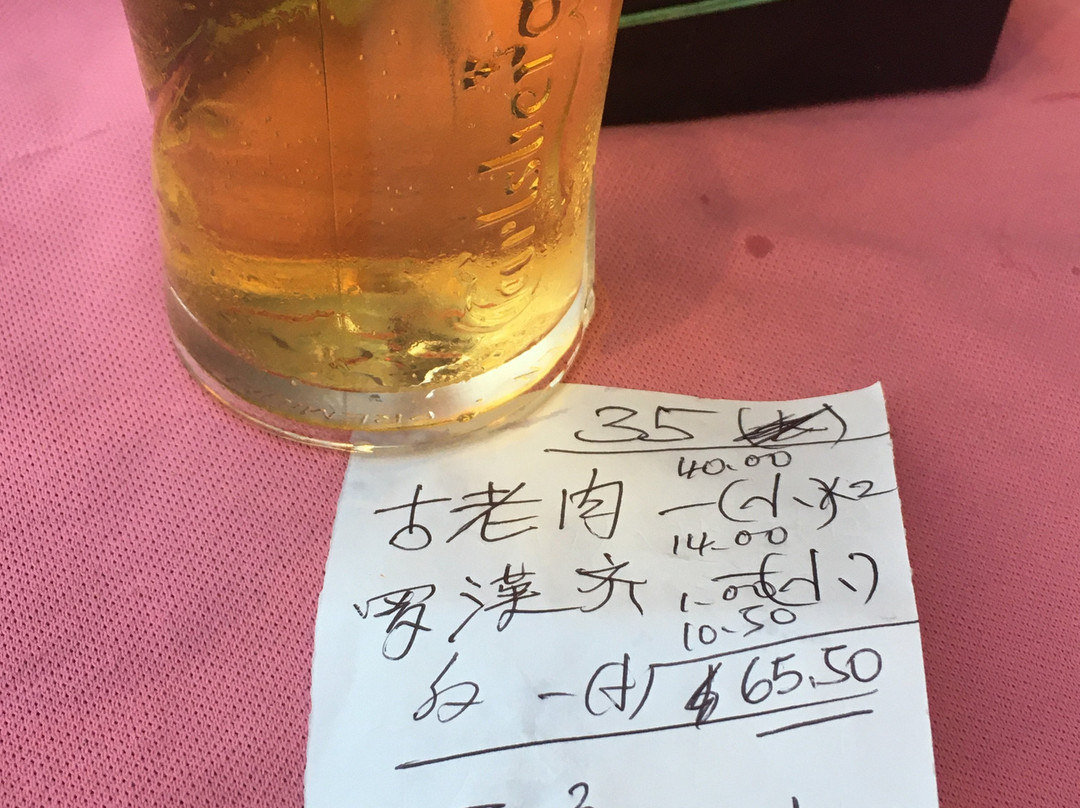 Carlsberg
35
40.00
古老肉 一(小)x2
14.00
罗漢齐 一(小)
1.00
10.50
$65.50